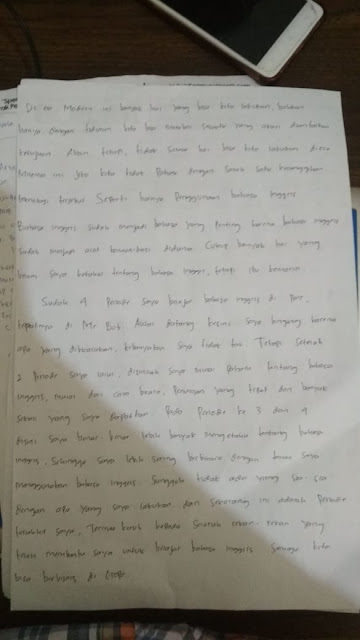 Di era Modern ini banyak hal yang bisa kita lakukan, bahkan
hanya dengan tiduran kita bisa sesuatu yang akan
Akan tetapi, tidak semua hal bisa kita lakukan di era
ini jika kita tidak Paham dengan salah satu
teknologi tersebut Seperti hanya Penggunaan bahasa inggris
Bahasa inggris sudah menjadi bahasa yang Penting karena bahasa inggris
sudah menjadi alat komunikasi didunia Cukup banyak hal yang
belum saya ketahui tentang bahasa inggris, tetapi itu kemarin
Sudah 4 Periode saya belajar bahasa inggris di Pare,
tepatnya di Mr Bob, Awal datang kesini saya bingung karena
apa yang dibicarakan, kebanyakan saya tidak tau. Tetapi setelah
2 Periode saya lalui, disinilah saya mulai Paham tentang bahasa
inggris, mulai dari cara baca, Penulisan yang tepat dan banyak
sekali yang saya dapatkan. Pada Periode ke 3 dan 4
disini saya benar-benar lebih banyak mengetahui tentang bahasa
inggris, Sehingga saya lebih sering berbicara dengan
menggunakan bahasa inggris. Sungguh tidak ada yang sia-sia
dengan apa yang saya lakukan, dan sekarang ini adalah Periode
terakhir saya, Terima kasih kepada Seluruh rekan-rekan yang
telah membantu saya untuk belajar bahasa inggris Semoga kita
bisa berjumpa di